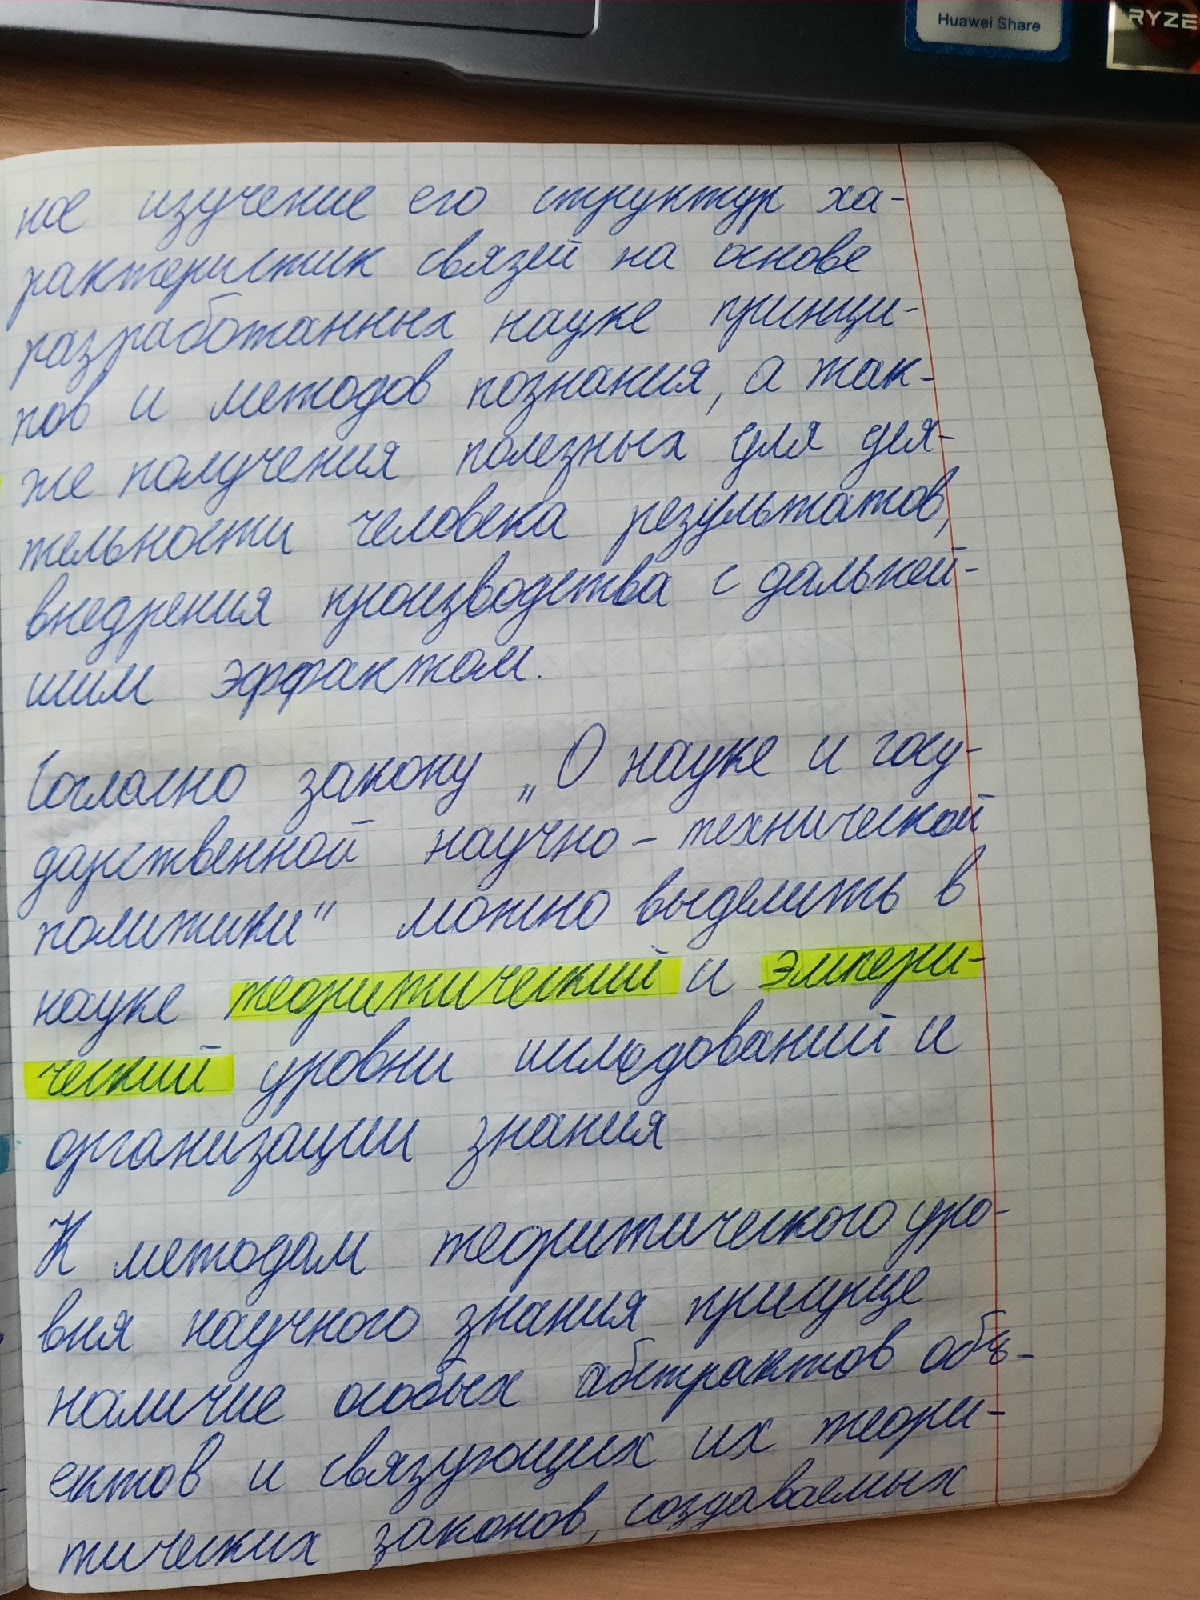 Huawei Share
RYZE
ное изучение его структур ха-
рактеристик связей на основе
разработанных науке принци-
пов и методов познания, а так-
же получения полезных для дея-
тельности человека результатов,
внедрения производства с дальней-
шим эффактом.
Согласно закону „О науке и госу-
дарственной научно-технической
политики" можно выделить в
науке теоритический и эмпери-
ческий уровни исследований и
организации знания
К методам теоритического уро-
вня научного знания присуще
наличие особых абстрактов объ-
ектов и связующих их теори-
тических законов, создаваемых